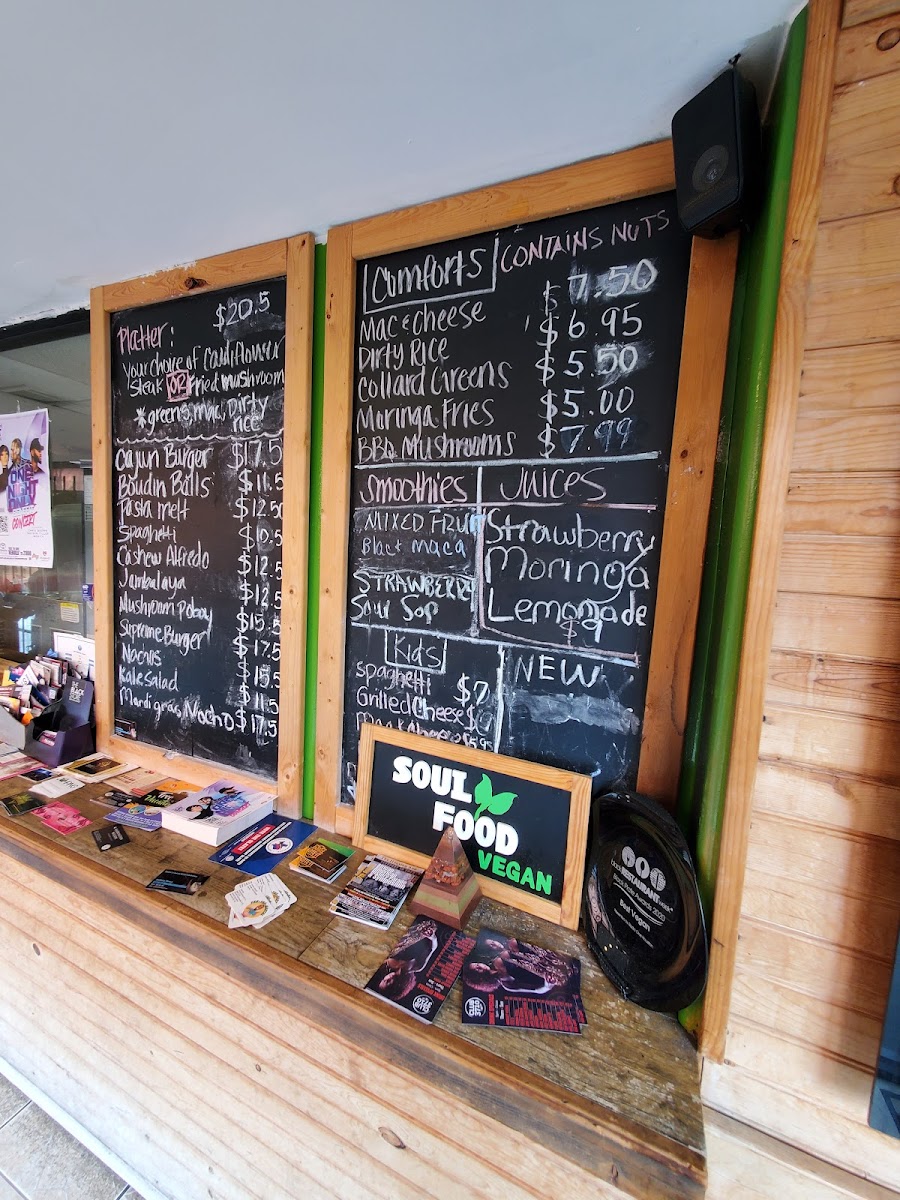 $20.5
Platter:
Your choice of Cauliflower
Steak OR fried mushroom
*greens, mac, Dirty
rice
Cajun Burger $17.5
Boudin Balls $11.5
Pasta melt $12.50
Spaghetti $10.5
Cashew Alfredo $12.5
Jambalaya $12.5
Mushroom Poboy $15.5
Supreme Burger $17.5
Nachos $15.5
Kale Salad $11.5
Mardi gras Nacho $17.5
Comforts CONTAINS NUTS
Mac & Cheese $7.50
Dirty Rice $6.95
Collard Greens $5.50
Moringa Fries $5.00
BBQ Mushrooms $7.99
Smoothies
MIXED FRUIT
Black maca
STRAWBERRY
Sour Sop
Juices
Strawberry
Moringa
Lemonade
$9
Kids
spaghetti $7
Grilled Cheese
NEW
SOUL
FOOD
VEGAN
RESTAURANT
Awards 2020
Best Vegan
ONE
NIGHT
ONLY
CONCERT